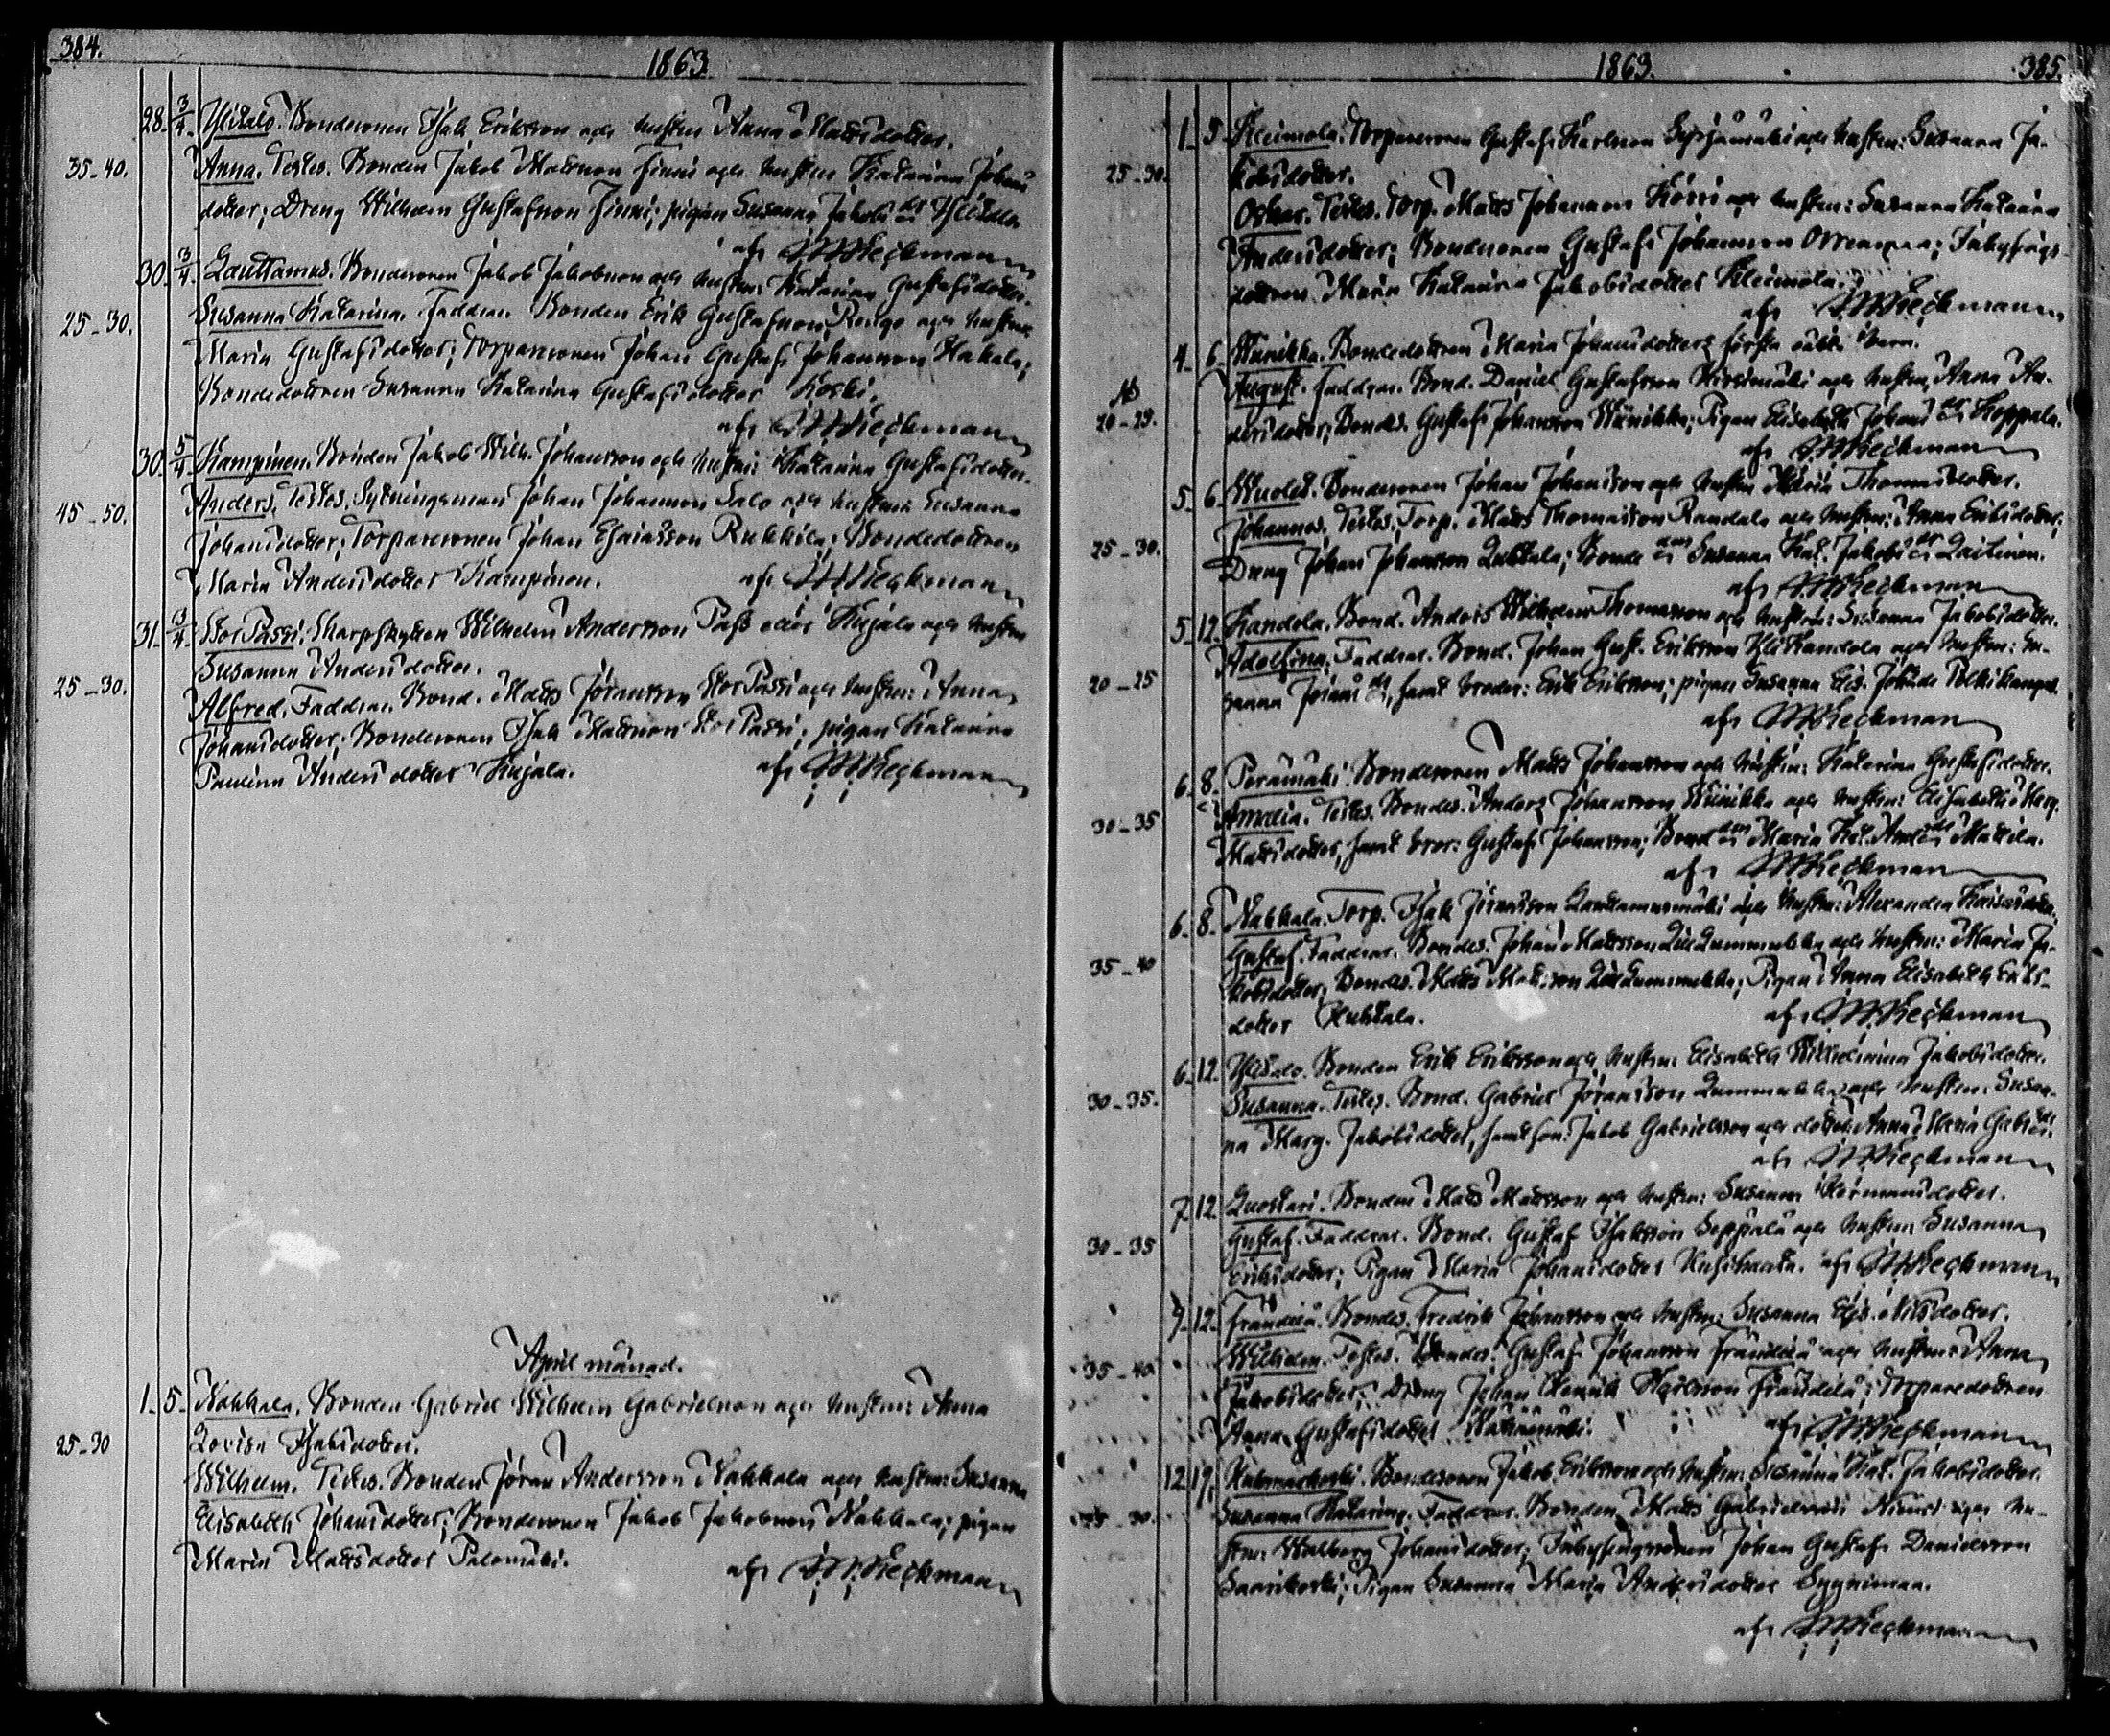 384.
1863.
28. 3/4. Ylisalo. Bondesonen Isak Eriksson och hustru Anna Mattsdotter.
35-40. Anna. Testes. Bonden Jakob Mattsson Finni och hustru Katarina Johans
dotter; Dreng Wilhelm Gustafsson Finni; pigan Susanna Jakobs dr Ylisalo
afs Wieckmann
30. 3/4. Lauttamus. Bondesonen Jakob Jakobsson och hustru: Katarina Gustafsdotter.
25-30. Susanna Katarina. Faddrar. Bonden Erik Gustafsson Rengo och hustru
Maria Gustafsdotter; Torparesonen Johan Gustaf Johansson Hakala;
Bondedottren Susanna Katarina Gustafsdotter Koski.
afs Wieckmann
30. 5/4. Kampinen. Bonden Jakob Wilh. Johansson och hustru: Katarina Gustafsdotter.
45-50. Anders. Testes. Sytningsman Johan Johansson Salo och hustrun Susanna
Johansdotter; Torparesonen Johan Esaiasson Rukkila; Bondedottren
Maria Andersdotter Kampinen. afs Wieckmann
31. 3/4. Stor Passi. Skarpskytten Wilhelm Andersson Pass eller Kujala och hustru
Susanna Andersdotter.
25-30. Alfred. Faddrar. Bond. Matts Jöransson Stor Passi och hustru: Anna
Johansdotter; Bondesonen Isak Mattsson Stor Passi; pigan Katarina
Paulina Andersdotter Kujala. afs Wieckmann
April månad.
1. 5. Nahkala. Bonden Gabriel Wilhelm Gabrielsson och hustru: Anna
25-30 Lovisa Isaksdotter.
Wilhelm. Testes. Bonden Jöran Andersson Nahkala och hustru: Susanna
Elisabeth Johansdotter; Bondesonen Jakob Jakobsson Nahkala; pigan
Maria Mattsdotter Palomäki.
afs Wieckmann
1863.
385.
1. 5. Kleimola. Torparesonen Gustaf Karlsson och hustru: Susanna Ja-
25-30. kobsdotter.
Oskar. Testes. Torp. Matts Johansson och hustru: Susanna Katarina
Andersdotter; Bondesonen Gustaf Johansson; Inhysings
dottren Maria Katarina Jakobsdotter Kleimola.
afs Wieckmann
4. 6. Wiinikka. Bondedottren Maria Johansdotters första oäkta barn.
August. Faddrar. Bond. Daniel Gustafsson och hustru Anna An-
20-25. dersdotter; Bondes. Gustaf Johansson Wiinikka; Pigan Elisabeth Johans dr Koppala.
afs Wieckmann
5. 6. Wuolet. Bondesonen Johan Johansson och hustru Maria Thomasdotter.
Johannes. Testes. Torp. Matts Thomasson Randala och hustru: Anna Eriksdotter;
25-30. Dreng Johan Johansson; Bonde Susanna Kat. Jakobs dr Laitinen.
afs Wieckmann
5. 12. Kandola. Bond. Anders Wilhelm Thomasson och hustru: Susanna Jakobsdotter.
Adolfina. Faddrar. Bond. Johan Gust. Eriksson Yli Kandola och hustru: Su-
20-25 sanna, samt broder: Erik Eriksson; pigan Susanna Elis.
afs Wieckman
6. 8. Perämäki. Bondesonen Matts Johansson och hustru: Katarina Gustafsdotter.
30-35 Amalia. Testes. Bondes. Anders Johansson Wiinikka och hustru: Elisabeth Marg.
Mattsdotter, samt bror: Gustaf Johansson; Bond Maria Kat. Anders dr Mattila.
afs Wieckman
6. 8. Nahkala. Torp. Isak Jöransson Lauttamusmäki och hustru: Alexandra
35-40 Gustaf. Faddrar. Bondes. Johan Mattsson och hustru: Maria Ja-
kobsdotter; Bondes. Matts Mattsson; Pigan Anna Elisabeth Eriks-
dotter Huhtala. afs Wieckman
6. 12. Ylisalo. Bonden Erik Eriksson och hustru: Elisabeth Wilhelmina Jakobsdotter.
30-35. Susanna. Testes. Bond. Gabriel Jöransson och hustru: Susan-
na Marg. Jakobsdotter, samt son: Jakob Gabrielsson och dotter: Anna Maria Gabriels dr.
afs Wieckmann
7. 12. Luostari. Bonden Matts Mattsson och hustru: Susanna Hermansdotter.
30-35 Gustaf. Faddrar. Bond. Gustaf Isaksson Seppälä och hustru Susanna
Eriksdotter; Pigan Maria Johansdotter. afs Wieckmann
9. 12. Frändilä. Bondes. Fredrik Johansson och hustru: Susanna Elis. Nilsdotter.
35-40 Wilhelm. Testes. Bondes. Gustaf Johansson Frändilä och hustru: Anna
Jakobsdotter; Dreng Johan Henrik Karlsson Frändilä; Torparedottren
Anna Gustafsdotter. afs Wieckmann
12. 19. Bondesonen Jakob Eriksson och hustru: Susanna Kat. Jakobsdotter.
Susanna Katarina. Faddrar. Bonden Matts Gabrielsson och hu-
stru: Walborg Johansdotter; Inhysingssonen Johan Gustaf Danielsson
Saarikoski; Pigan Susanna Maria Andersdotter.
afs Wieckmann